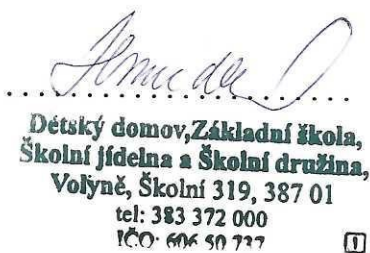 Dětský domov,Základní škola,
Školní jídelna a Školní družina,
Volyně, Školní 319, 387 01
tel: 383 372 000
IČO: 606 50 737